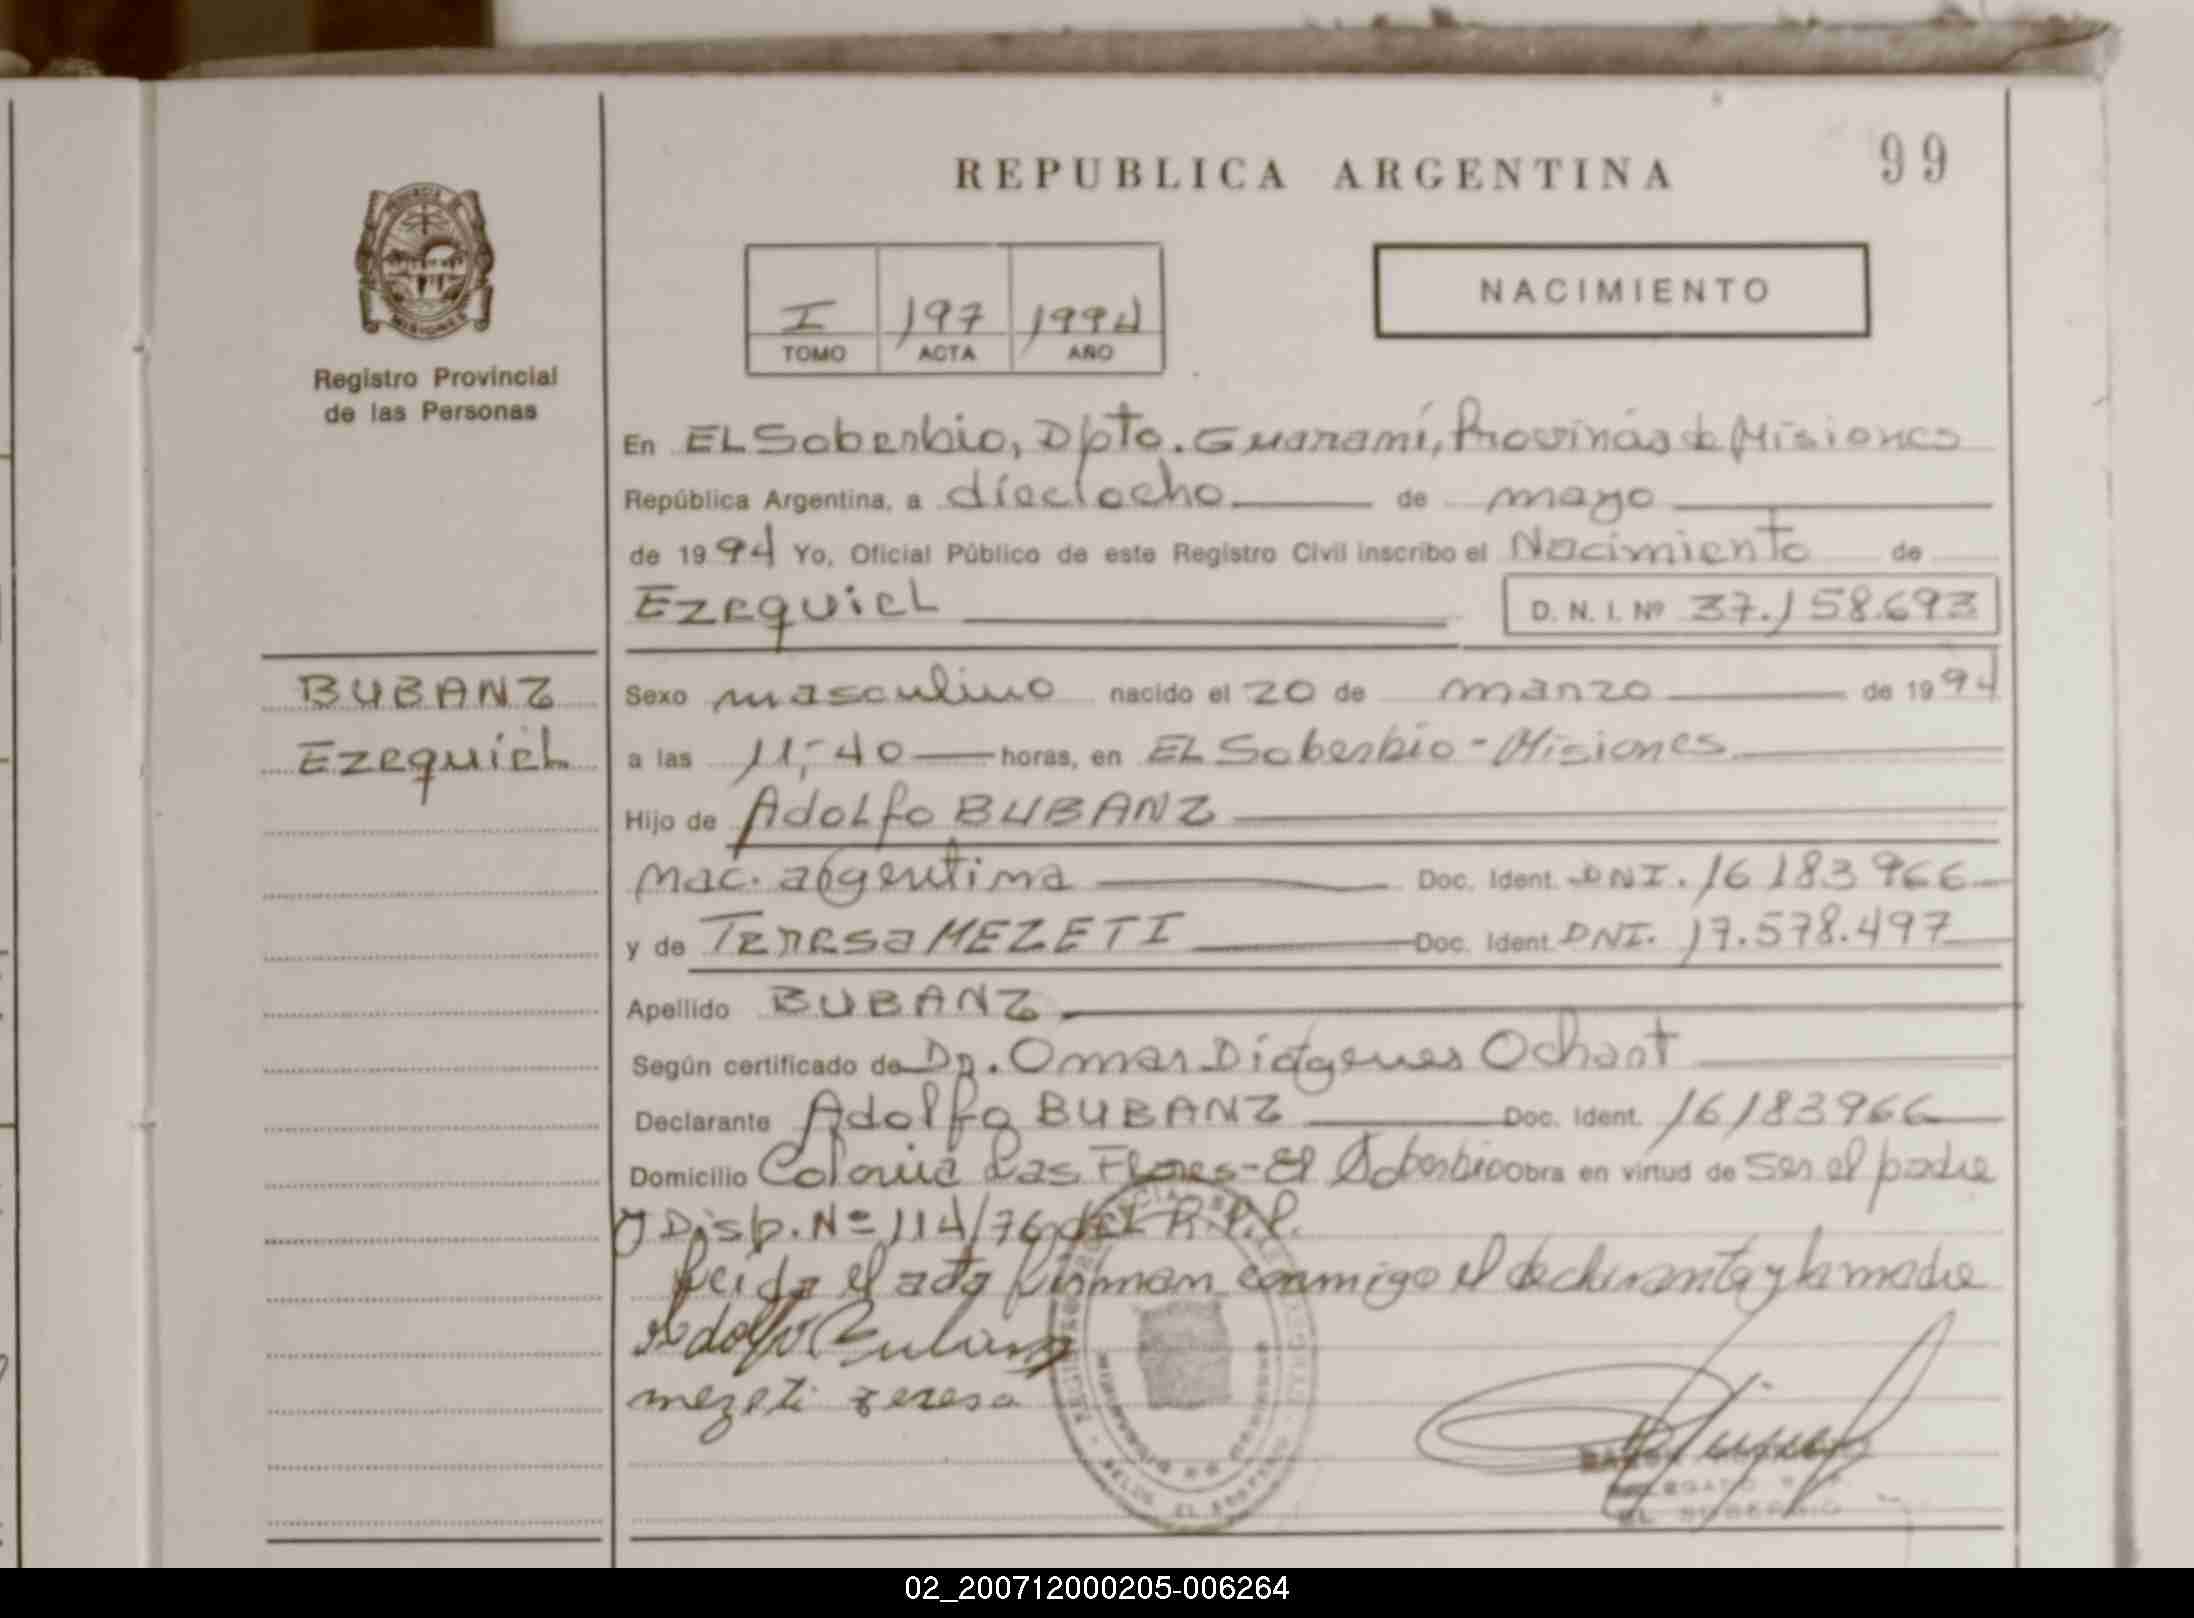 99
REPUBLICA ARGENTINA
NACIMIENTO
I 197 1994
TOMO ACTA AÑO
PROVINCIA DE
MISIONES
Registro Provincial
de las Personas
En EL Soberbio, Dpto. Guaraní, Provincia de Misiones
República Argentina, a dieciocho de mayo
de 1994 Yo, Oficial Público de este Registro Civil inscribo el Nacimiento de
Ezequiel D. N. I. Nº 37.158.693
BUBANZ
Ezequiel
Sexo masculino nacido el 20 de marzo de 1994
a las 11,-40 horas, en EL Soberbio - Misiones
Hijo de Adolfo BUBANZ
Nac. argentina Doc. Ident. DNI. 16183966
y de Teresa MEZETI Doc. Ident. DNI. 17.578.497
Apellido BUBANZ
Según certificado de Dr. Omar Diógenes Ochant
Declarante Adolfo BUBANZ Doc. Ident. 16183966
Domicilio Colonia Las Flores - El Soberbio Obra en virtud de ser el padre
y Disp. Nº 114/76 del R.P.P.
Leida el acta firman conmigo el declarante y la madre
Adolfo Bubanz
mezeti teresa
EL SOBERBIO
02_200712000205-006264